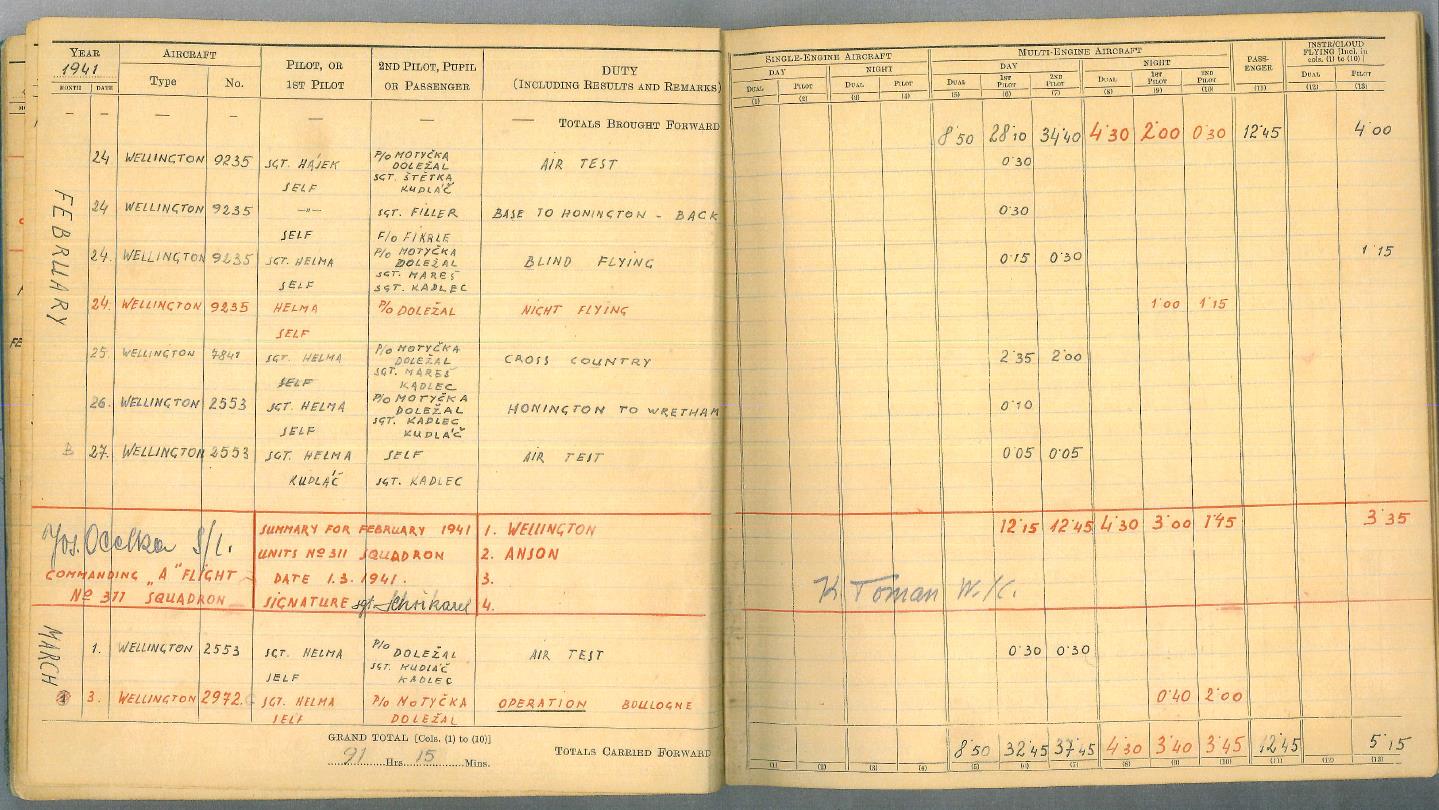 YEAR 1941 AIRCRAFT PILOT, OR 1ST PILOT 2ND PILOT, PUPIL OR PASSENGER DUTY (INCLUDING RESULTS AND REMARKS) SINGLE-ENGINE AIRCRAFT MULTI-ENGINE AIRCRAFT PASS-ENGER INSTR/CLOUD FLYING [Incl. in cols. (1) to (10)]
MONTH DATE Type No. DAY NIGHT DAY NIGHT
DUAL PILOT DUAL PILOT DUAL 1ST PILOT 2ND PILOT DUAL 1ST PILOT 2ND PILOT DUAL PILOT
(1) (2) (3) (4) (5) (6) (7) (8) (9) (10) (11) (12) (13)
— — — — — — — TOTALS BROUGHT FORWARD 8˙50 28˙10 34˙40 4˙30 2˙00 0˙30 12˙45 4˙00
FEBRUARY
24 WELLINGTON 9235 SGT. HÁJEK P/O MOTYČKA AIR TEST 0˙30
DOLEŽAL
SGT. ŠTĚTKA
SELF KUDLÁČ
24 WELLINGTON 9235 —"— SGT. FILLER BASE TO HONINGTON - BACK 0˙30
SELF F/O FIKRLE
24. WELLINGTON 9235 SGT. HELMA P/O MOTYČKA BLIND FLYING 0˙15 0˙30 1˙15
DOLEŽAL
SGT. MAREŠ
SELF SGT. KADLEC
24. WELLINGTON 9235 HELMA P/O DOLEŽAL NIGHT FLYING 1˙00 1˙15
SELF
25. WELLINGTON 7841 SGT. HELMA P/O MOTYČKA CROSS COUNTRY 2˙35 2˙00
DOLEŽAL
SGT. MAREŠ
SELF KADLEC
26. WELLINGTON 2553 SGT. HELMA P/O MOTYČKA HONINGTON TO WRETHAM 0˙10
DOLEŽAL
SGT. KADLEC
SELF KUDLÁČ
B 27. WELLINGTON 2553 SGT. HELMA SELF AIR TEST 0˙05 0˙05
KUDLÁČ SGT. KADLEC
Jos. Ocelka S/L. SUMMARY FOR FEBRUARY 1941 1. WELLINGTON 12˙15 12˙45 4˙30 3˙00 1˙45 3˙35
UNITS Nº 311 SQUADRON 2. ANSON
COMMANDING „A" FLIGHT DATE 1.3.1941. 3. K Toman W./C.
Nº 311 SQUADRON SIGNATURE sgt. 4.
MARCH
1. WELLINGTON 2553 SGT. HELMA P/O DOLEŽAL AIR TEST 0˙30 0˙30
SGT. KUDLÁČ
SELF KADLEC
1 3. WELLINGTON 2972. SGT. HELMA P/O MOTYČKA OPERATION BOULOGNE 0˙40 2˙00
SELF DOLEŽAL
GRAND TOTAL [Cols. (1) to (10)] TOTALS CARRIED FORWARD 8˙50 32˙45 37˙45 4˙30 3˙40 3˙45 12˙45 5˙15
91 Hrs. 15 Mins. (1) (2) (3) (4) (5) (6) (7) (8) (9) (10) (11) (12) (13)